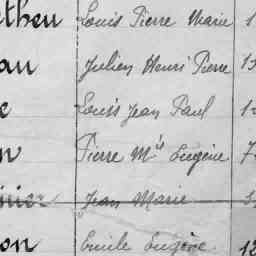 theu Louis Pierre Marie 1
au Julien Henri Pierre 13
e Louis Jean Paul 1
n Pierre Mie Eugène 7
nier Jean Marie
on Emile Eugène 12